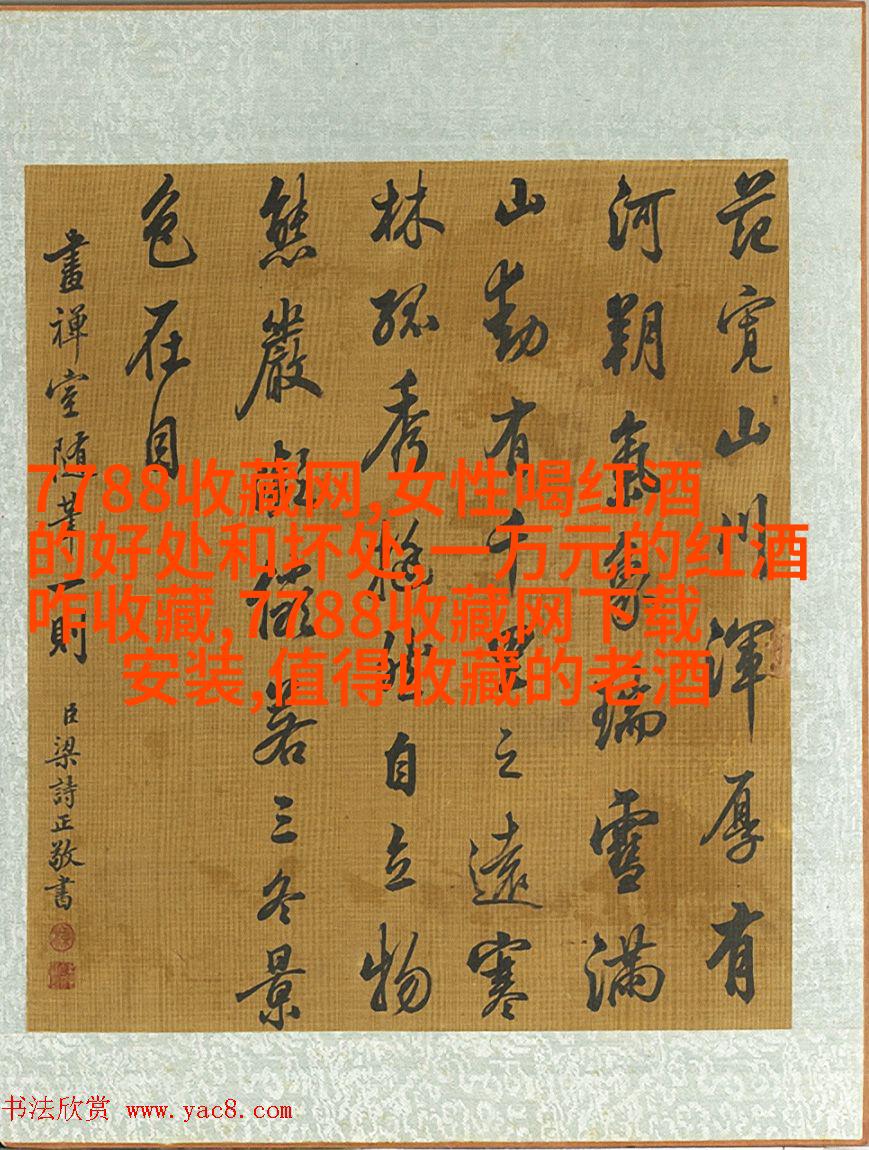 范寬山川渾厚有
河朔氣象瑞雪滿
山動有千里之遠寒
林孤秀挺然自立物
態嚴凝儼若三冬景
色在目
畫禪室随筆一則
臣梁詩正敬書
7788收藏网,女性喝红酒
的好处和坏处,一万元的红酒
咋收藏,7788收藏网下载
安装,值得收藏的老酒
书法欣赏 www.yac8.com